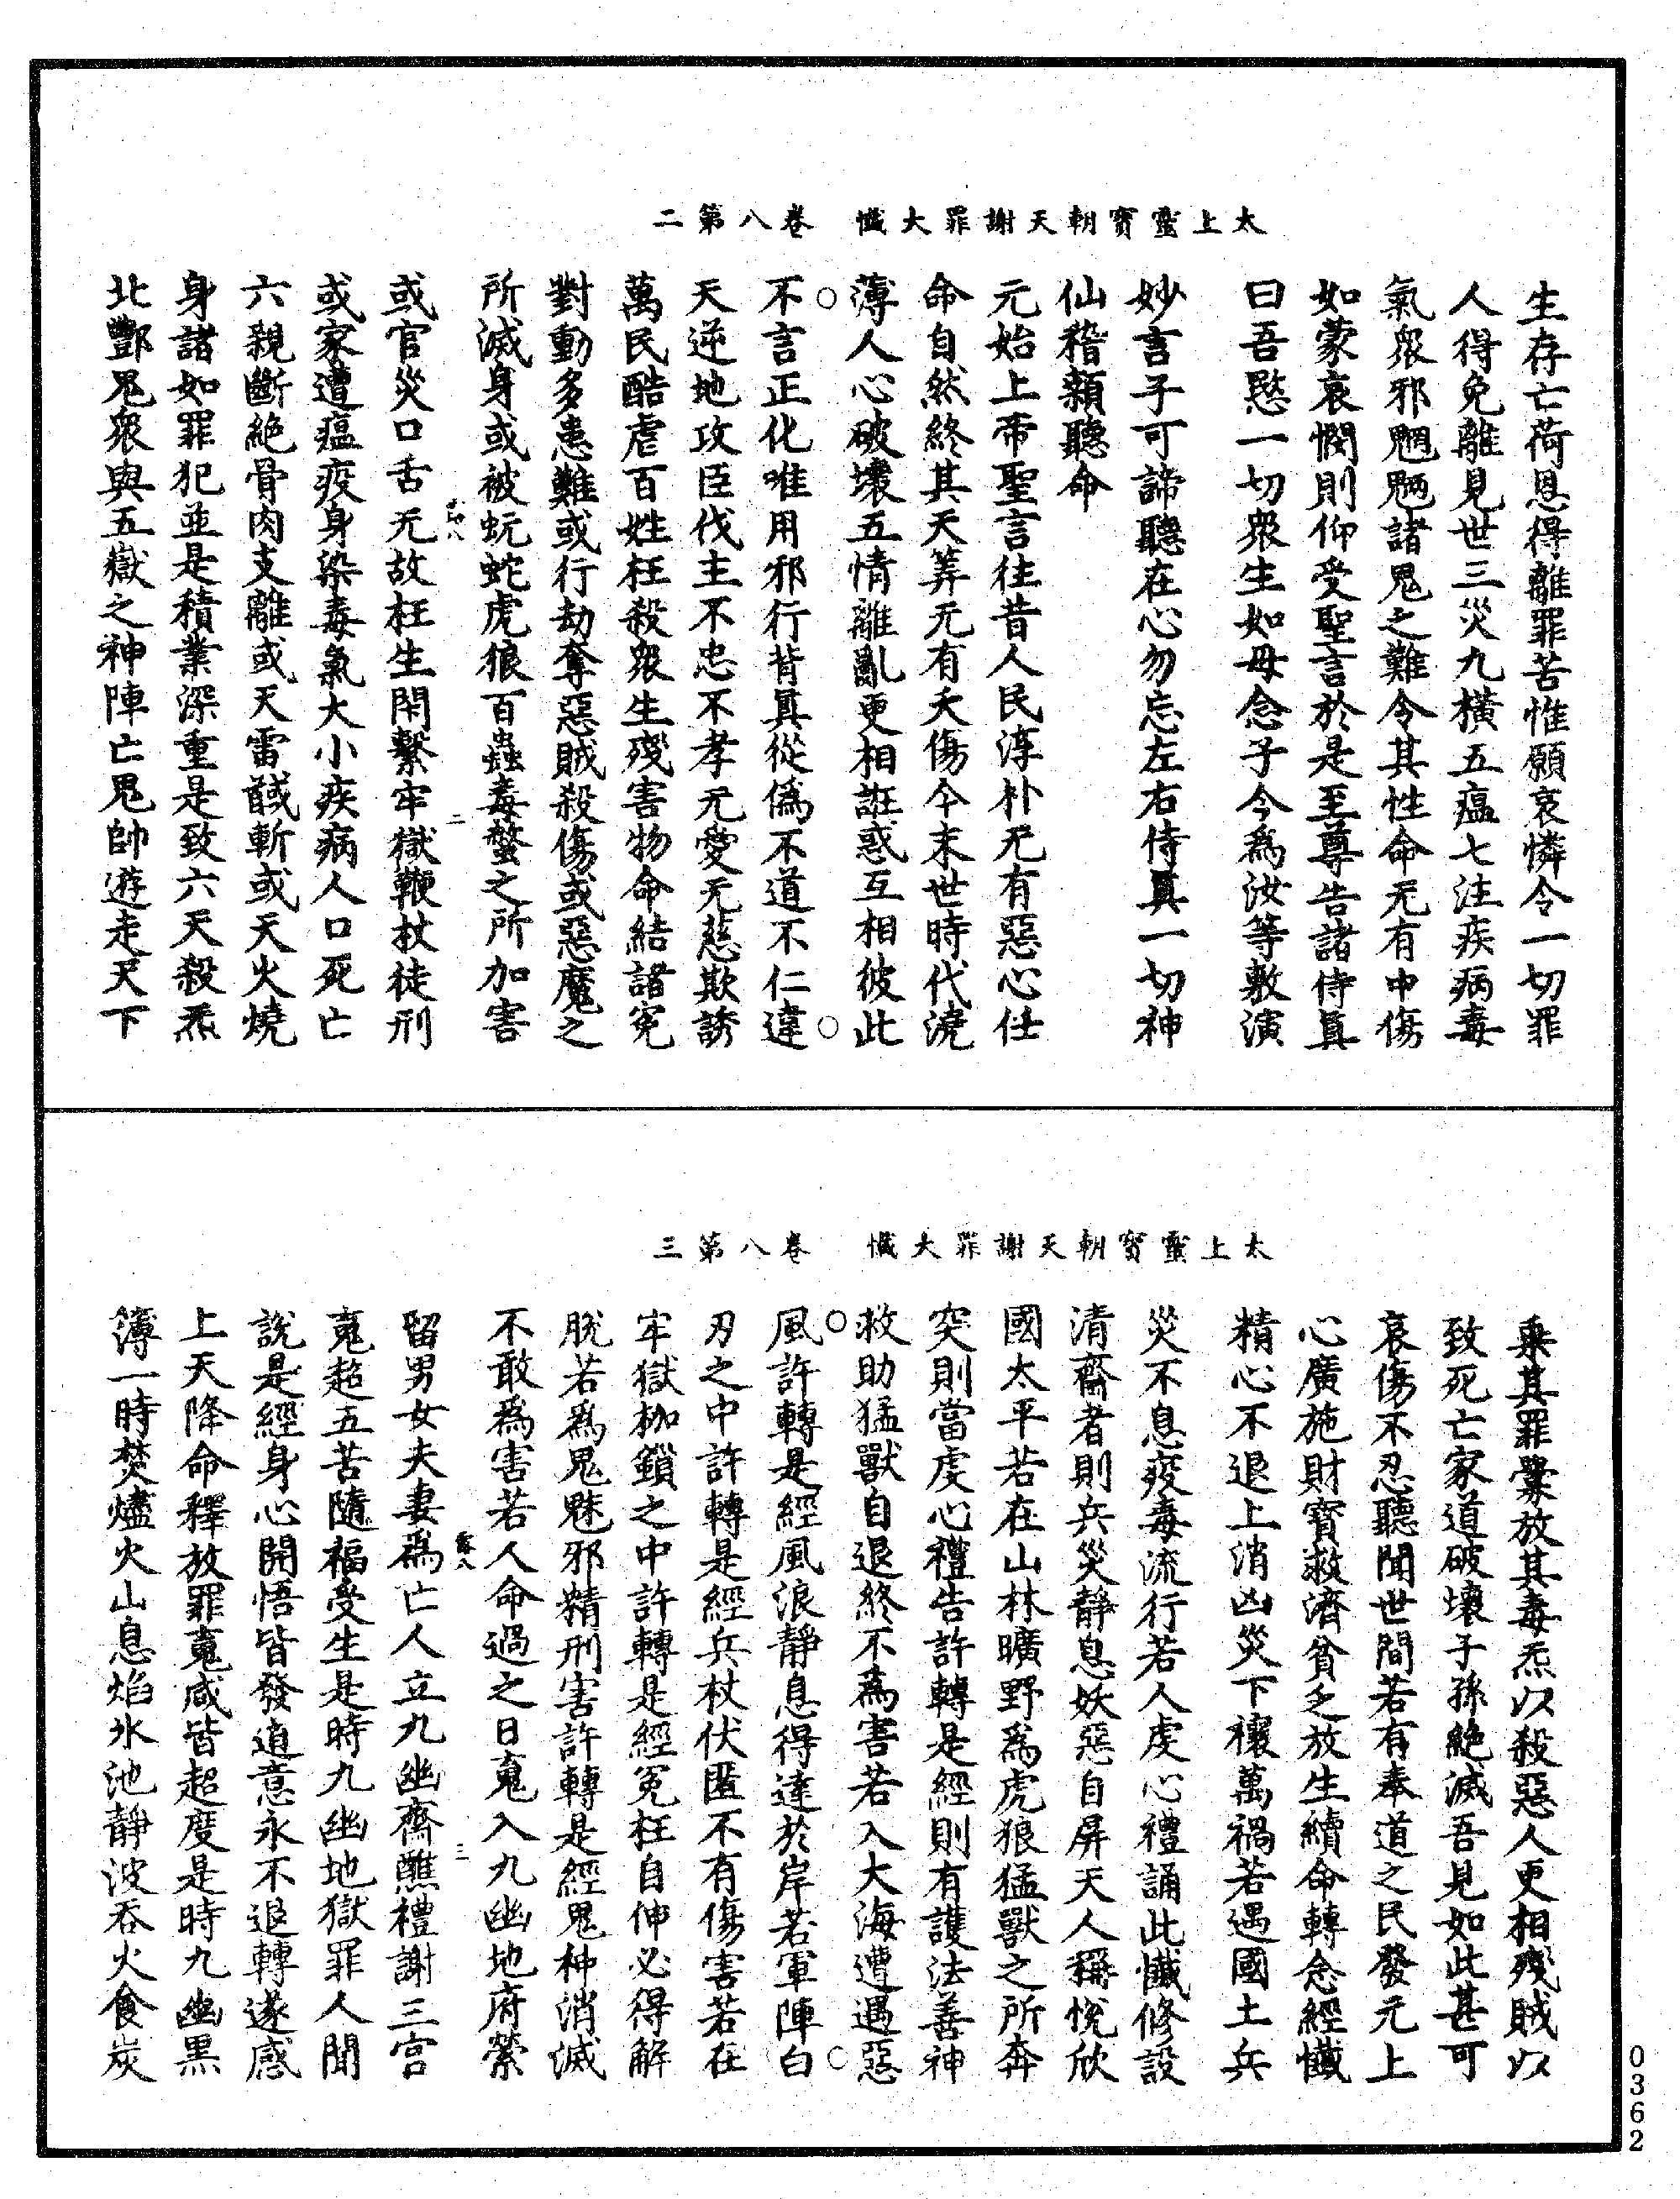 太上靈寶朝天謝罪大懺　卷八第二
生存亡荷恩得離罪苦惟願哀憐令一切罪
人得免離見世三災九橫五瘟七注疾病毒
氣眾邪魍魎諸鬼之難令其性命无有中傷
如蒙哀憫則仰受聖言於是至尊告諸侍眞
曰吾愍一切眾生如母念子今為汝等敷演
妙言子可諦聽在心勿忘左右侍眞一切神
仙稽顙聽命
元始上帝聖言往昔人民淳朴无有惡心任
命自然終其天筭无有夭傷今末世時代澆
薄人心破壞五情離亂更相誑惑互相彼此
不言正化唯用邪行背眞從偽不道不仁違
天逆地攻臣伐主不忠不孝无愛无慈欺誘
萬民酷虐百姓枉殺眾生殘害物命結諸冤
對動多患難或行劫奪惡賊殺傷或惡魔之
所滅身或被蚖蛇虎狼百蟲毒螫之所加害
或官災口舌无故枉生閉繫牢獄鞭杖徒刑
或家遭瘟疫身染毒氣大小疾病人口死亡
六親斷絕骨肉支離或天雷馘斬或天火燒
身諸如罪犯並是積業深重是致六天殺炁
北酆鬼眾與五嶽之神陣亡鬼帥遊走天下
二
太上靈寶朝天謝罪大懺　卷八第三
乘其罪舋放其毒炁以殺惡人更相殘賊以
致死亡家道破壞子孫絕滅吾見如此甚可
哀傷不忍聽聞世間若有奉道之民發元上
心廣施財寶救濟貧乏放生續命轉念經懺
精心不退上消凶災下禳萬禍若遇國土兵
災不息疫毒流行若人虔心禮誦此懺修設
清齋者則兵災靜息妖惡自屏天人稱悅欣
國太平若在山林曠野為虎狼猛獸之所奔
突則當虔心禮告許轉是經則有護法善神
救助猛獸自退終不為害若入大海遭遇惡
風許轉是經風浪靜息得達於岸若軍陣白
刃之中許轉是經兵杖伏匿不有傷害若在
牢獄枷鎖之中許轉是經冤枉自伸必得解
脫若為鬼魅邪精刑害許轉是經鬼神消滅
不敢為害若人命過之日䰟入九幽地府縈
留男女夫妻為亡人立九幽齋醮禮謝三官
䰟超五苦隨福受生是時九幽地獄罪人聞
說是經身心開悟皆發道意永不退轉遂感
上天降命釋放罪䰟咸皆超度是時九幽黑
簿一時焚燼火山息焰氷池靜波吞火食炭
露八
三
0362